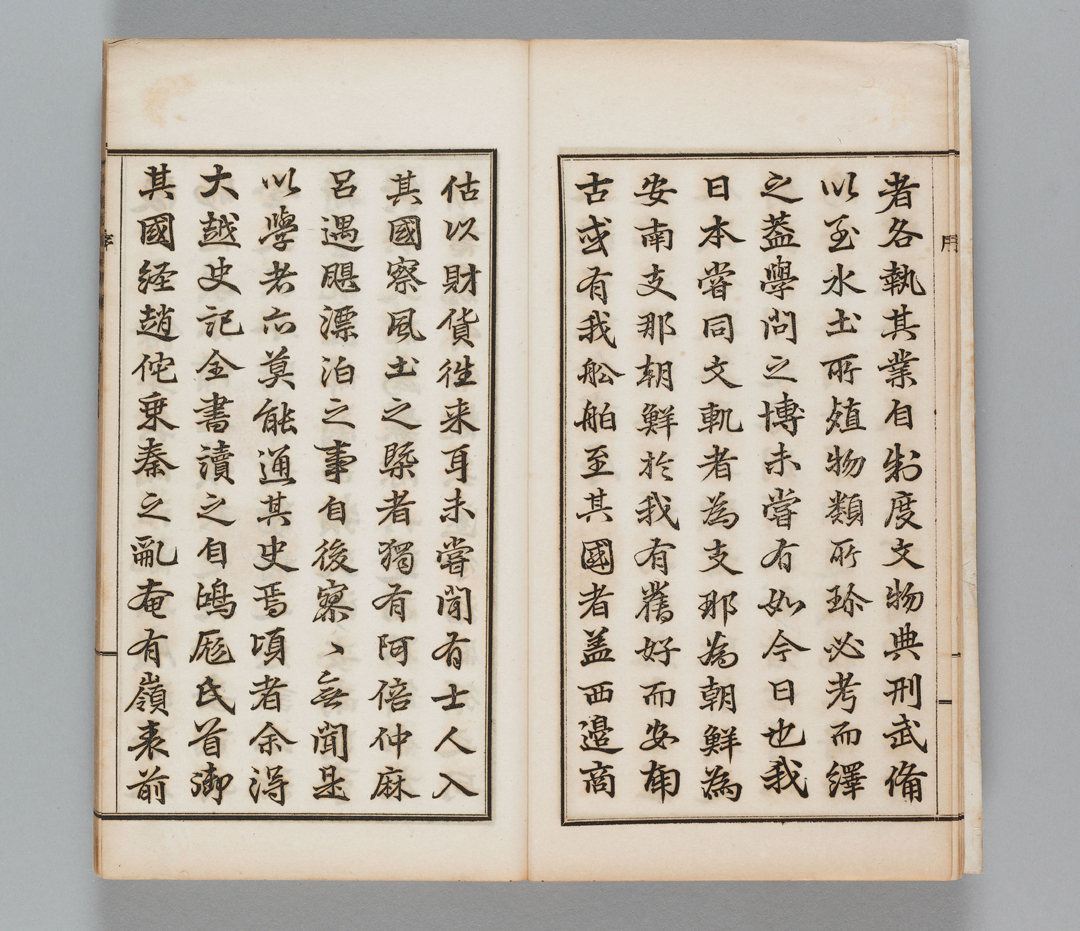 者各執其業自制度文物典刑武備
以至水土所殖物類所珎必考而繹
之蓋學問之博未嘗有如今日也我
日本嘗同文軌者為支那為朝鮮為
安南支那朝鮮於我有舊好而安南
古或有我舩舶至其國者盖西邉商
估以財貨徃来耳未嘗聞有士人入
其國察風土之槩者獨有阿倍仲麻
呂遇颶漂泊之事自後寥〻無聞是
以學者亦莫能通其史焉頃者余得
大越史記全書讀之自鴻厖氏首御
其國経趙佗乗秦之亂奄有嶺表前